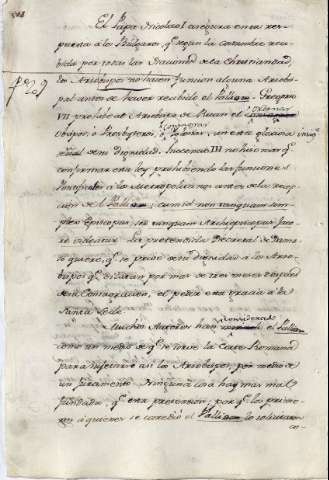 El Papa Nicolao I asegura en su res-
puesta a los Bulgaros, qe segun la costumbre reci-
bida por todas las Naciones de la Christiandad,
los Arzobispos no hacen funcion alguna Arzobis-
pal antes de haver recibido el Pallium. Gregorio
VII prohibe al Arzobispo de Ruan el ordenar
Obispos, ó Presbyteros, ó consagrar sin esta gloriosa insig-
nia de su Dignidad. Inocencio III no hace mas qe
confirmar esta ley prohibiendo las funciones
Pontificales a los Metropolitanos antes de la recep-
cion de el Pallium: cum id non tanquam sim-
plex Episcopus, sed tanquam Archiepiscopus face-
re videatur. La pretendida Decretal de Dama-
so quiere, qe se prive de su dignidad a los Arzo-
bispos qe dilatan por mas de tres meses despues
de su Consagracion, el pedir esta gracia a la
Santa Sede.
Muchos Autores han considerado el Pallium
como un medio de qe se sirve la Corte Romana
para sujetarse asi los Arzobispos, por medio de
un juramento. Ninguna cosa hay mas mal
fundada, qe esta pretension; porqe los prime-
ros a quienes se concedió el Pallium lo solicitaron
co-